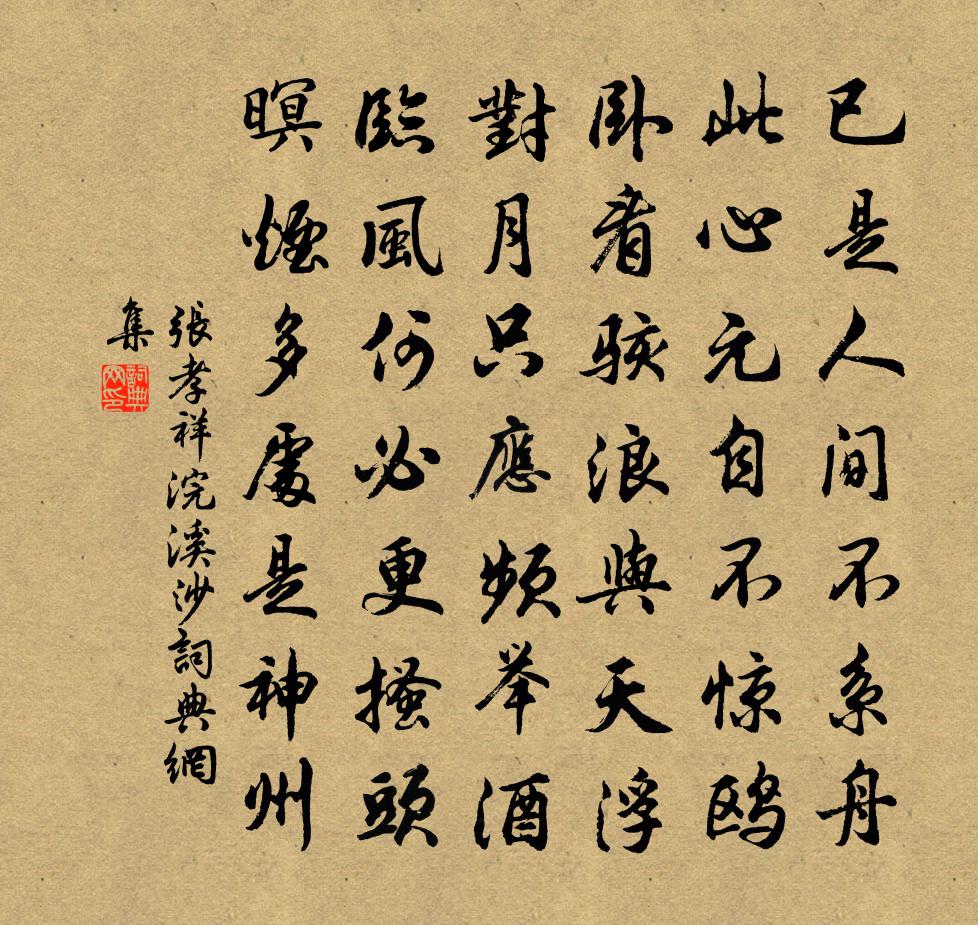 已是人间不系舟
此心元自不惊鸥
卧看骇浪與天浮
對月只應频举酒
臨風何必更搔頭
暝煙多處是神州
張孝祥浣溪沙詞典網
集
詞典網印